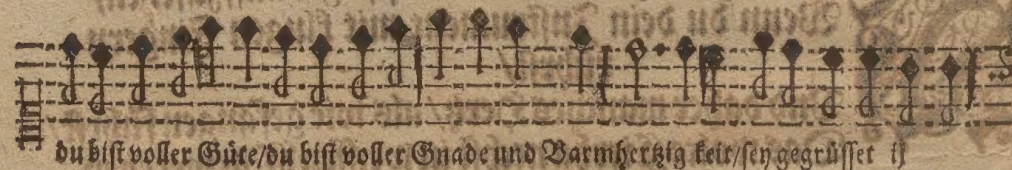 du bist voller Güte/du bist voller Gnade und Barmhertzig keit/sey gegrüsset ij